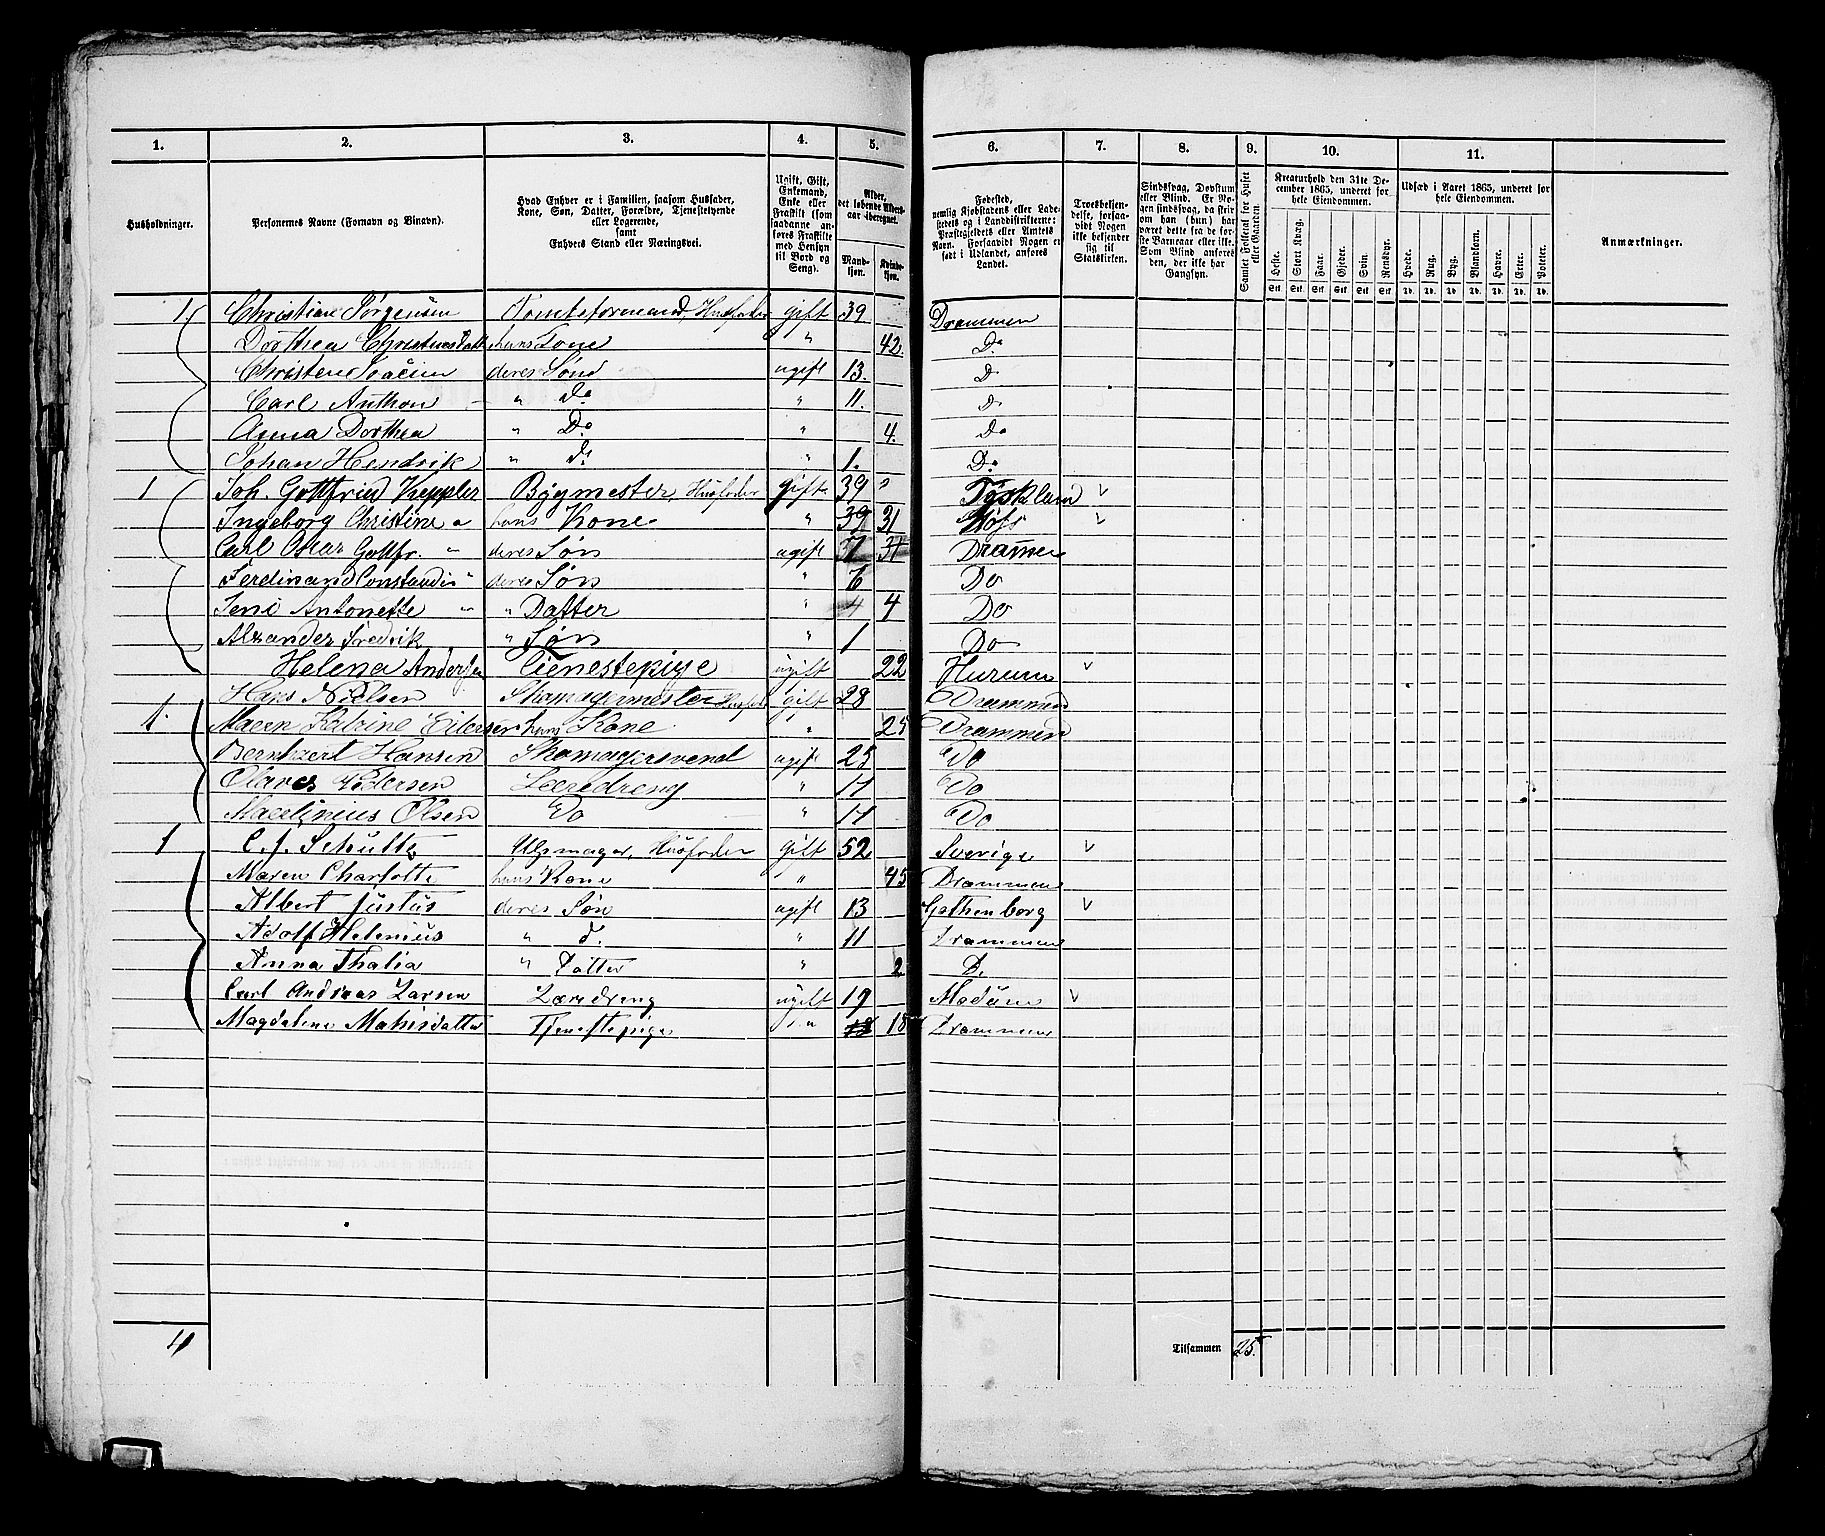 1. 2. 3. 4. 5. 6. 7. 8. 9. 10. 11.
Husholdninger.
Personernes Navne (Fornavn og Binavn).
Hvad Enhver er i Familien, saasom Husfader, Kone, Søn, Datter, Forældre, Tjenestetyende eller Logerende, samt Enhvers Stand eller Næringsvei.
Ugift, Gift, Enkemand, Enke eller Fraskilt (som saadanne anføres Fraskilte med Hensyn til Bord og Seng).
Alder, det løbende Alders-aar iberegnet.
Mandkjøn. Kvindekjøn.
Fødested, nemlig Kjøbstadens eller Ladestedets og i Landdistrikterne: Præstegjeldets eller Amtets Navn. Forsaavidt Nogen er født i Udlandet, anføres Landet.
Troesbekjendelse, forsaavidt Nogen ikke bekjender sig til Statskirken.
Sindssvag, Døvstum eller Blind. Er Nogen sindssvag, da skrives om han (hun) har været dette fra de første Barneaar eller ikke. Som Blind anføres den, der ikke har Gangsyn.
Samlet Folketal for Huset eller Gaarden.
Kreaturhold den 31te December 1865, underet for hele Eiendommen.
Heste. Stort Kvæg. Faar. Gjeder. Svin. Rensdyr.
Stk. Stk. Stk. Stk. Stk. Stk.
Udsæd i Aaret 1865, underet for hele Eiendommen.
Hvede. Rug. Byg. Blandkorn. Havre. Erter. Poteter.
Td. Td. Td. Td. Td. Td. Td.
Anmærkninger.
1. Christian Jørgensen Tomteformand, Husfader gift 39 Drammen
Dorthea Christensdatt hans Kone " 42. Do
Christen Joacim deres Søn ugift 13. Do
Carl Anthon " do " 11. Do
Anna Dorthea " Do " 4. Do
Johan Hendrik " do " 1. Do
1 Joh. Gottfried Keppler Bygmester, Husfader gift 39 " Tyskland v
Ingeborg Christine " hans Kone " 39 31 v
Carl Oscar Gottfr. " deres Søn ugift 31 Drammen
Ferdinand Constandin " deres Søn " 6 Do
Jeni Antonette " " Datter " 4 4 Do
Alxander Fredrik " Søn " 1 Do
Helena Andersen Tienestepige ugift 22 Hurum v
1. Hans Nielsen Skomagermester Husfad gift 28 Drammen
Maren Katrine Eilersen hans Kone " 25 Drammen
Bernhaert Hansen Skomagersvend ugift 25 Do
Olaves Pedersen Læredreng " 17 Do
Olsen Do " 17 Do
1 C. J. Schultz Uhrmager, Husfader gift 52 Sverige v
Maren Charlotte hans Kone " 45 Drammen
Albert Justus deres Søn ugift 13 Gothenborg v
Adolf Helenius " d. " 11 Drammen
Anna Thalia " Datter " 2 D.
Carl Andreas Larsen Læredreng ugift 19 Modum v
Magdalene Mathisdatter Tjenestepige " 18 18 Drammen
4 Tilsammen 25.